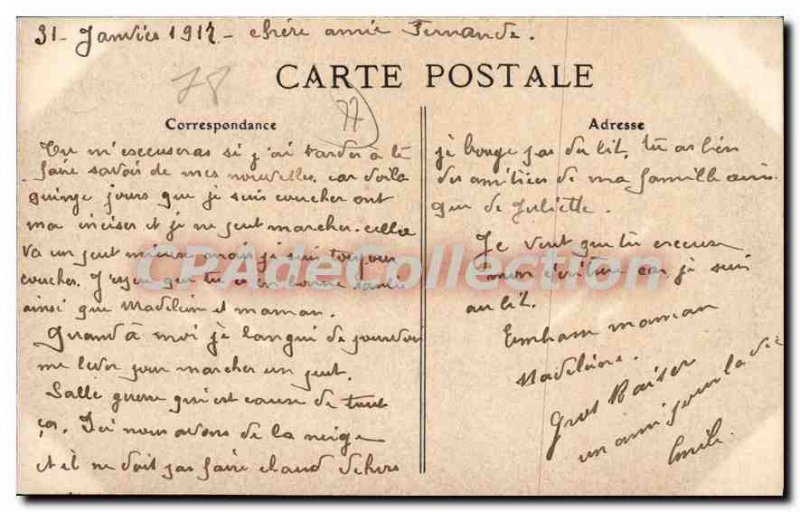 31 - Janvier 1917 - chère amie Fernande.
78
CARTE POSTALE
77
Correspondance
Tu m'escuseras si j'ai tarder à te
faire savoir de mes nouvelles, car voila
quinze jours que je suis coucher ont
ma inciser et je ne peut marcher.
va un peut mieux mais je suis toujours
coucher. J'espere que tu es en bonne santé
ainsi que Madeleine et maman.
Quand à moi je langui de pouvoir
me lever pour marcher un peut.
Salle guerre qui est cause de tout
ça. Ici nous avons de la neige
et il ne doit pas faire chaud dehors
Adresse
je bouge pas du lit, tu as bien
des amitiées de ma famille ainsi
que de Juliette.
Je veut que tu escuse
mon écriture car je suis
au lit.
Embrasse maman
Madeleine.
Gros Baiser
un ami pour la vie
Emile.
CPAdeCollection